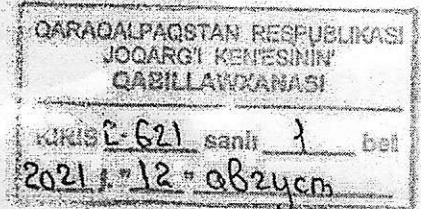 QARAQALPAQSTAN RESPUBLIKASI
JOQARG'I KEN'ESININ'
QABILLAWXANASI
KIRIS C-621 sanlı 1 bet
2021 j. "12" август